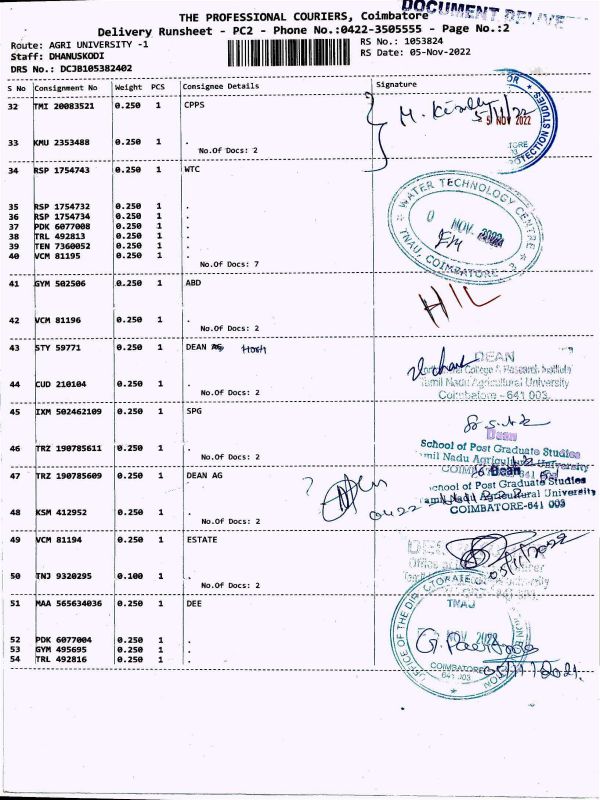 DOCUMENT DELIVE
THE PROFESSIONAL COURIERS, Coimbatore
Delivery Runsheet - PC2 - Phone No.:0422-3505555 - Page No.:2
Route: AGRI UNIVERSITY -1
RS No.: 1053824
Staff: DHANUSKODI
RS Date: 05-Nov-2022
DRS No.: DCJB105382402
S No Consignment No Weight PCS Consignee Details Signature
32 TMI 20083521 0.250 1 CPPS
5 NOV 2022
33 KMU 2353488 0.250 1 .
No.Of Docs: 2
34 RSP 1754743 0.250 1 WTC
WATER TECHNOLOGY CENTRE
NOV
TNAU, COIMBATORE - 3
35 RSP 1754732 0.250 1 .
36 RSP 1754734 0.250 1 .
37 PDK 6077008 0.250 1 .
38 TRL 492813 0.250 1 .
39 TEN 7360052 0.250 1 .
40 VCM 81195 0.250 1 .
No.Of Docs: 7
41 GYM 502506 0.250 1 ABD
42 VCM 81196 0.250 1 .
No.Of Docs: 2
43 STY 59771 0.250 1 DEAN AG
DEAN
College & Research Institute
Tamil Nadu Agricultural University
Coimbatore - 641 003.
44 CUD 210104 0.250 1 .
No.Of Docs: 2
45 IXM 502462109 0.250 1 SPG
Dean
School of Post Graduate Studies
Tamil Nadu Agricultural University
46 TRZ 190785611 0.250 1 .
No.Of Docs: 2
47 TRZ 190785609 0.250 1 DEAN AG
Dean
School of Post Graduate Studies
Tamil Nadu Agricultural University
COIMBATORE-641 003
48 KSM 412952 0.250 1 .
No.Of Docs: 2
49 VCM 81194 0.250 1 ESTATE
05/11/2022
50 TNJ 9320295 0.100 1 .
No.Of Docs: 2
51 MAA 565634036 0.250 1 DEE
OFFICE OF THE DIRECTORATE OF
TNAU
NOV 2022
COIMBATORE
641 003
52 PDK 6077004 0.250 1 .
53 GYM 495695 0.250 1 .
54 TRL 492816 0.250 1 .